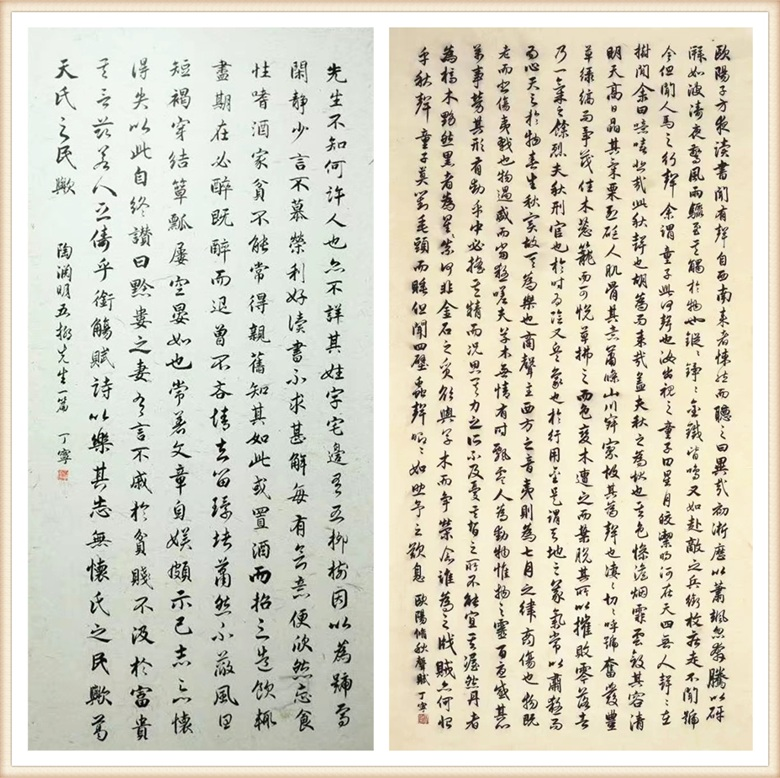 先生不知何許人也亦不詳其姓字宅邊有五柳樹因以為號焉
閑靜少言不慕榮利好讀書不求甚解每有會意便欣然忘食
性嗜酒家貧不能常得親舊知其如此或置酒而招之造飲輒
盡期在必醉既醉而退曾不吝情去留環堵蕭然不蔽風日
短褐穿結簞瓢屢空晏如也常著文章自娛頗示己志忘懷
得失以此自終讚曰黔婁之妻有言不戚於貧賤不汲於富貴
其言茲若人之儔乎銜觴賦詩以樂其志無懷氏之民歟葛
天氏之民歟
陶渊明五柳先生一篇 丁寧
歐陽子方夜讀書聞有聲自西南來者悚然而聽之曰異哉初淅瀝以蕭颯忽奔騰以砰
湃如波濤夜驚風雨驟至其觸於物也鏦鏦錚錚金鐵皆鳴又如赴敵之兵銜枚疾走不聞號
令但聞人馬之行聲余謂童子此何聲也汝出視之童子曰星月皎潔明河在天四無人聲聲在
樹間余曰噫嘻悲哉此秋聲也胡為而來哉蓋夫秋之為狀也其色慘澹烟霏雲斂其容清
明天高日晶其氣栗冽砭人肌骨其意蕭條山川寂寥故其為聲也淒淒切切呼號奮發豐
草綠縟而爭茂佳木葱籠而可悅草拂之而色變木遭之而葉脫其所以摧敗零落者
乃一氣之餘烈夫秋刑官也於时為陰又兵象也於行用金是謂天地之義氣常以肅殺而
為心天之於物春生秋實故其為樂也商聲主西方之音夷則為七月之律商傷也物既
老而悲傷夷戮也物過盛而當殺嗟夫草木無情有时飄零人為動物惟物之靈百憂感其心
萬事勞其形有動乎中必搖其精而況思其力之所不及憂其智之所不能宜其渥然丹者
為槁木黟然黑者為星星奈何非金石之質欲與草木而爭榮念誰為之戕賊亦何恨
乎秋聲童子莫對垂頭而睡但聞四壁蟲聲唧唧如助予之歎息 歐陽脩秋聲賦 丁寧